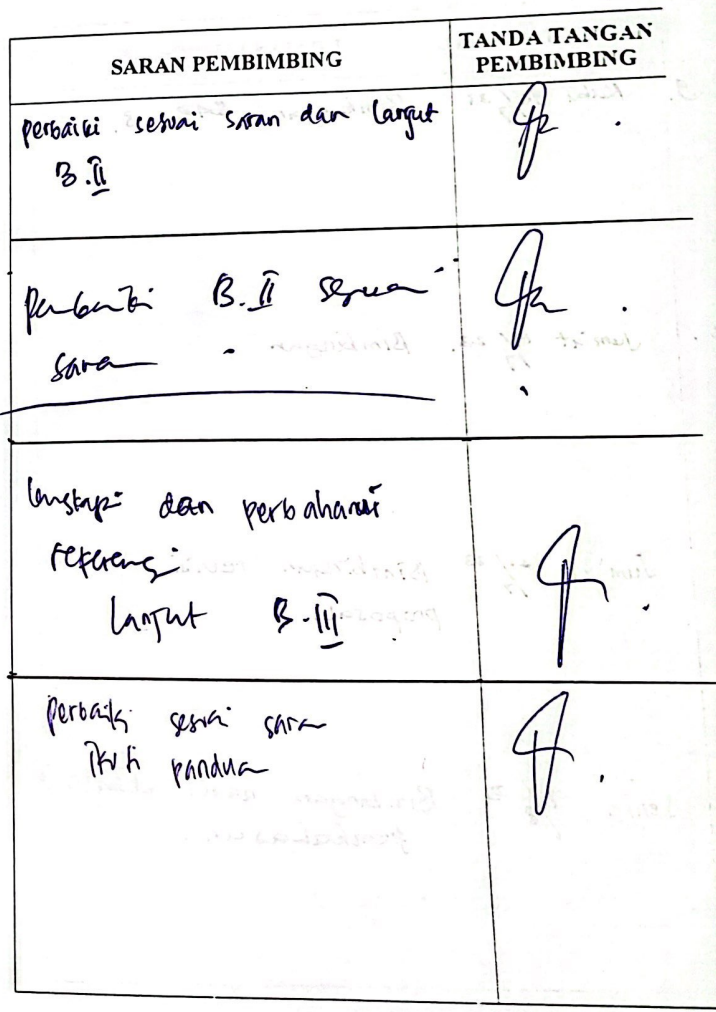 SARAN PEMBIMBING
TANDA TANGAN
PEMBIMBING
perbaiki sesuai saran dan lanjut
B.II
B.II sesuai
saran
lengkapi dan perbaharui
referensi
lanjut B.III
perbaiki sesuai saran
ikuti panduan